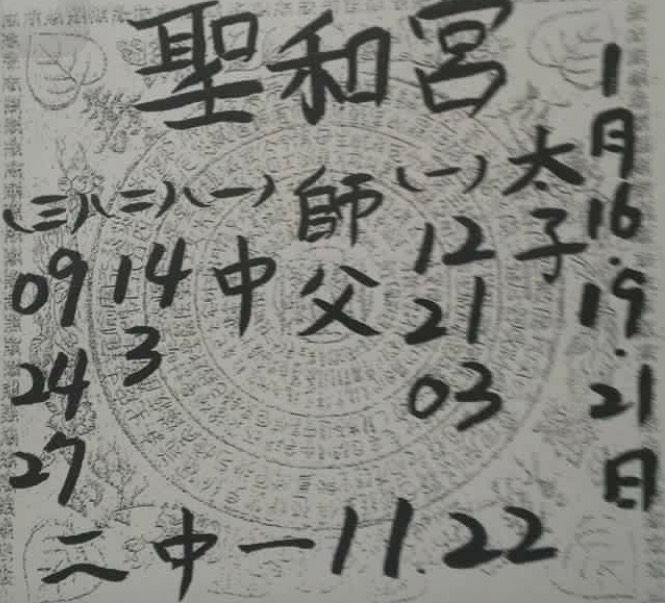 聖和宮
1月16.19.21日
太子
(一) 12 21 03
師父
(一) 中
(二) 14 3
(三) 09 24 27
二中一 11.22